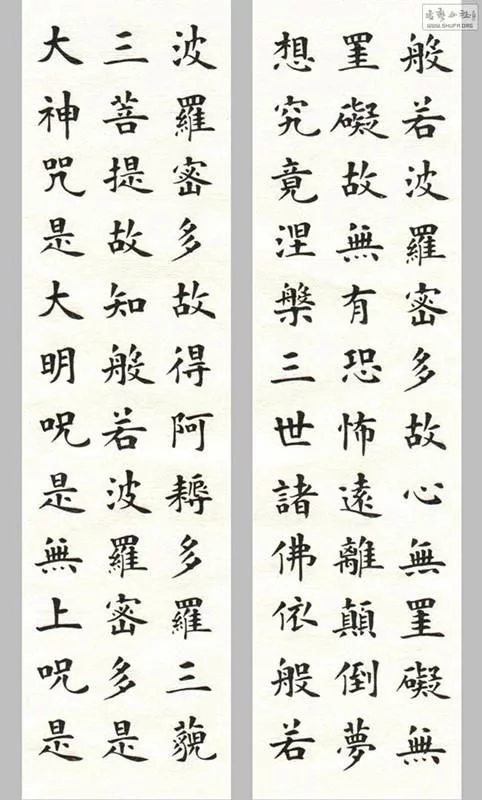 般若波羅密多故心無罣礙無
罣礙故無有恐怖遠離顛倒夢
想究竟涅槃三世諸佛依般若
波羅密多故得阿耨多羅三藐
三菩提故知般若波羅密多是
大神咒是大明呪是無上呪是
WWW.SHUFA.ORG